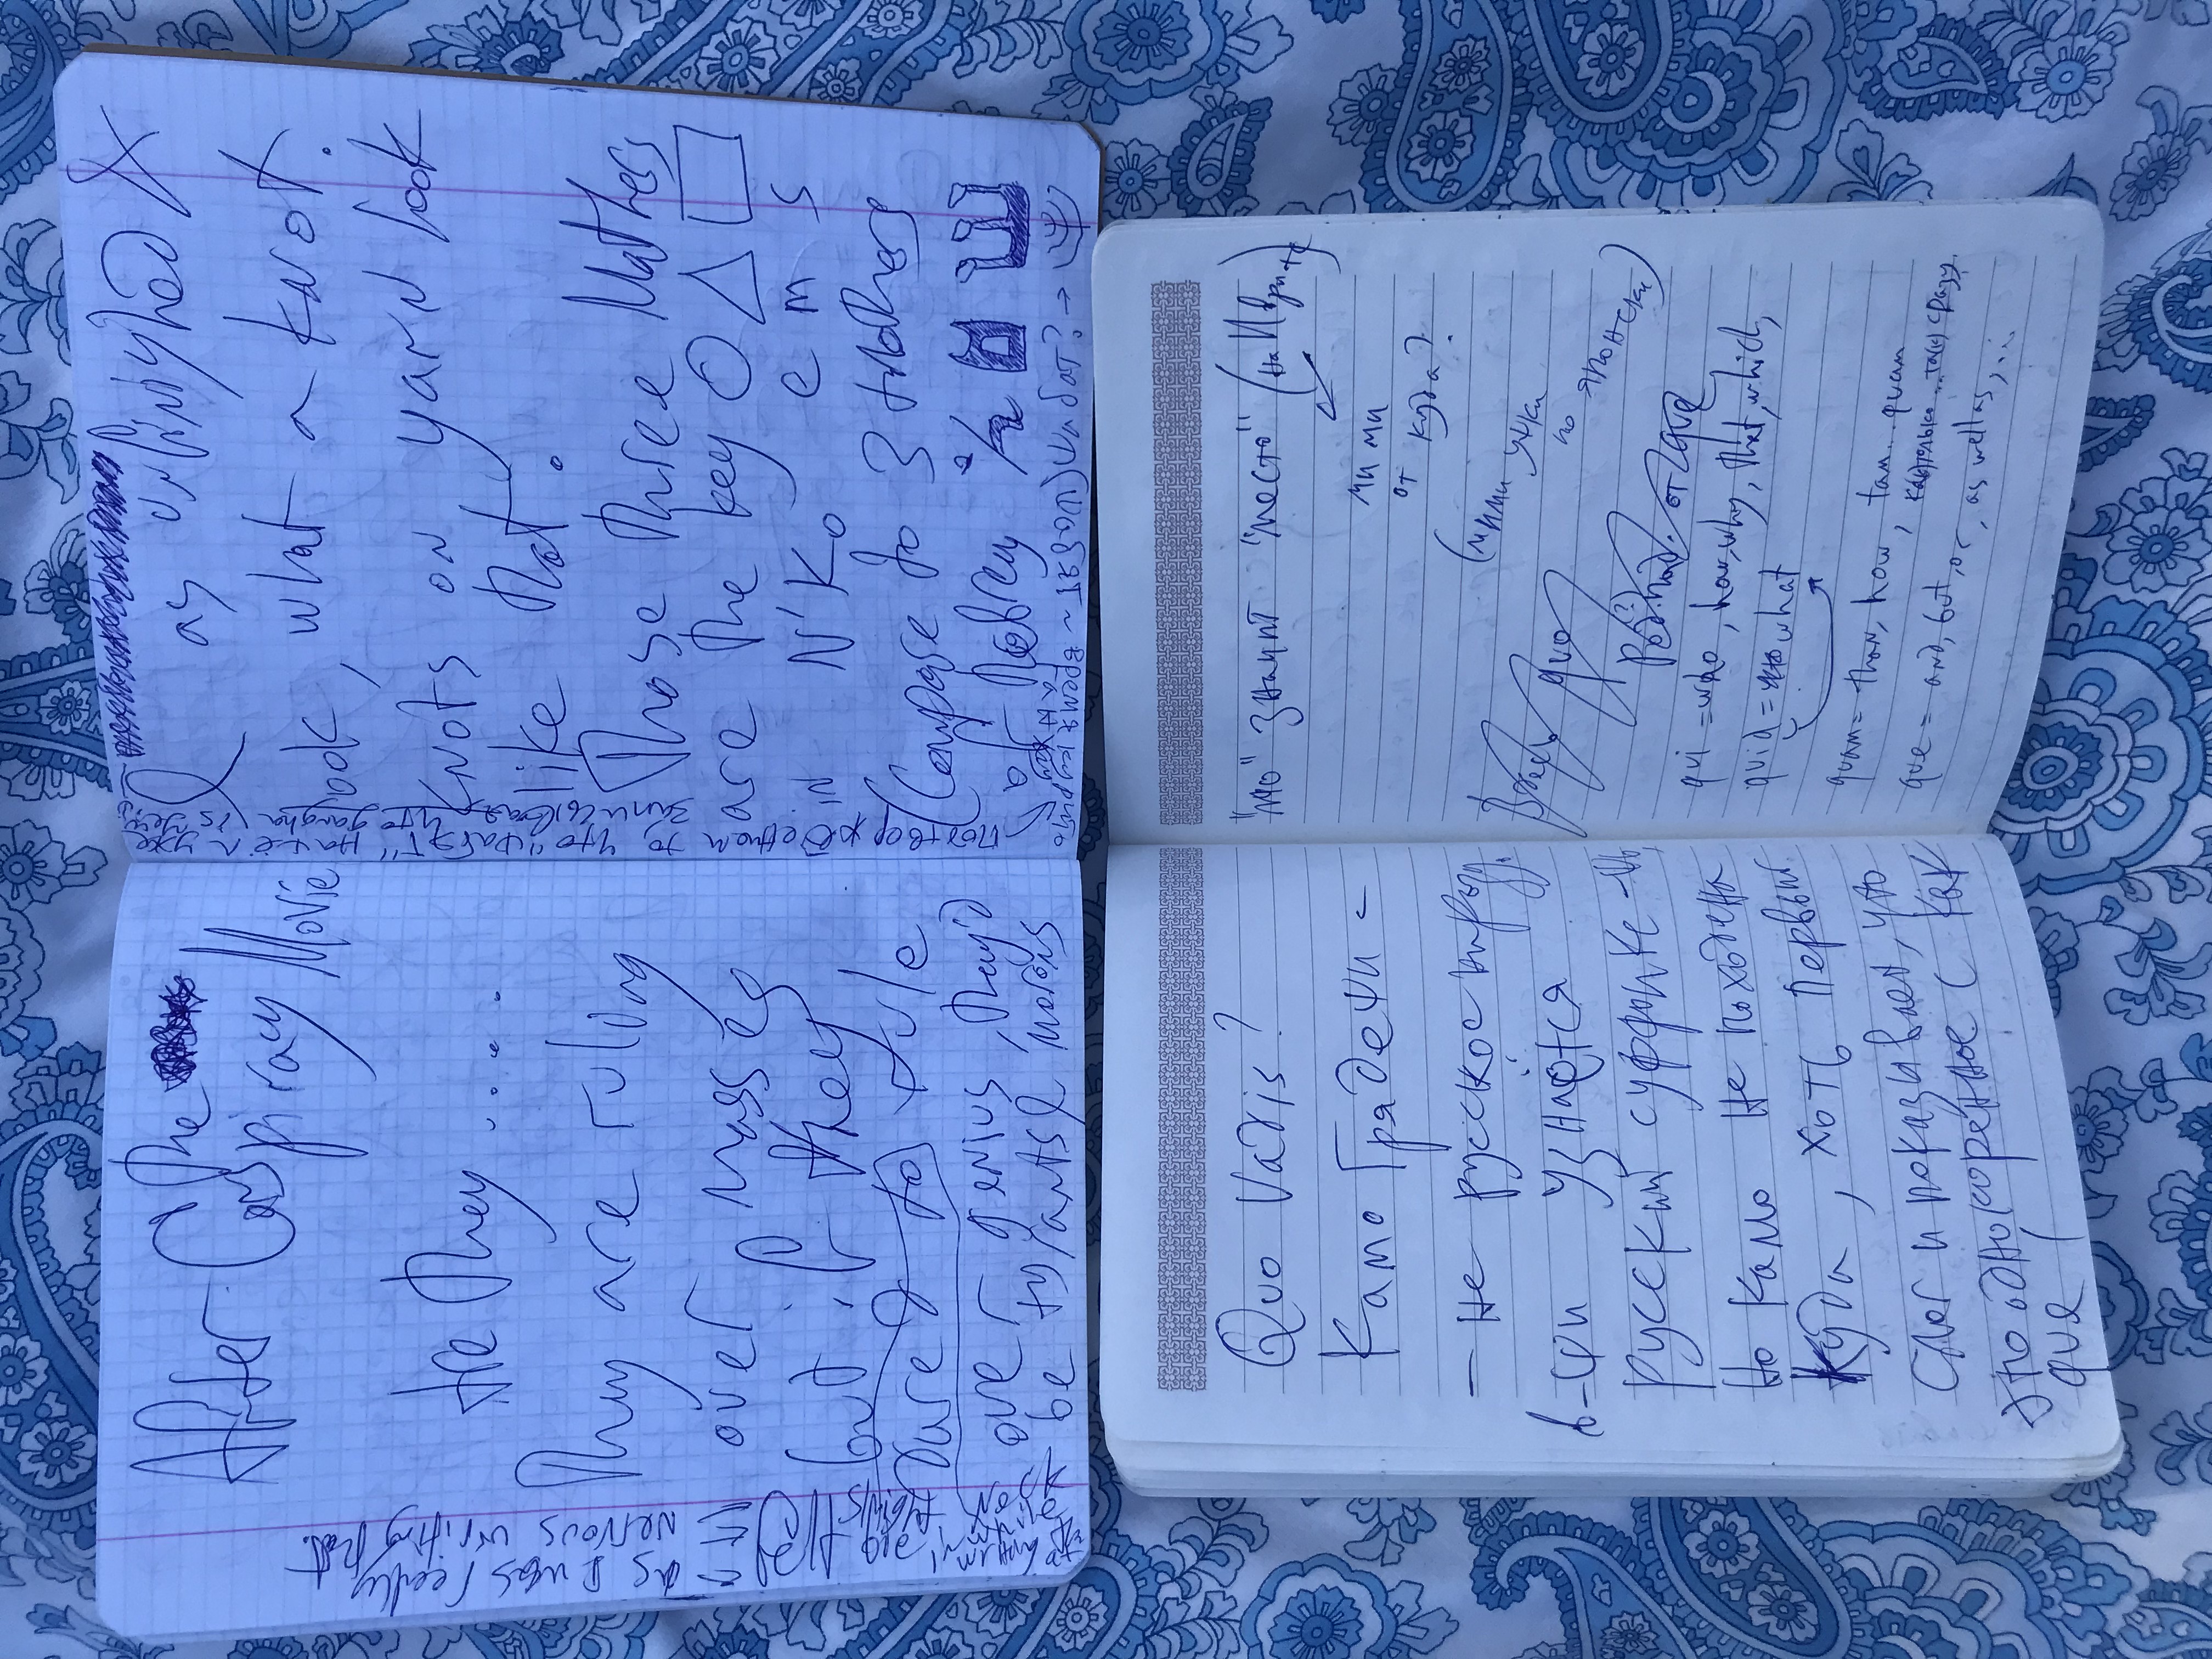 After the
Conspiracy Movie
the they .....
They are ruling
over masses
but if they
dared to rule
over genius, they'd
be tyrants & morons
as I was really
nervous writing that.
as unfinished &
look, what a knot.
Knots on yarn look
like that.
Those three Mothers
are the key ○ △ □
in N'Ko e m s
(Compare to 3 mothers
of Hebrew
Подтверждением то, что "Шабят" начать уже
записывая, что gangha is
Время курить
~ (Шабат? →
Quo Vadis?
Камо Грядеши -
- не русское
в -ши узнаётся
русский суффикс -шь,
Но камо не похоже на
куда, хоть первый
слог и показывает, что
это однокоренное с как
que
"мо" значит "место" (на Иврите)
ми ми
от куда?
(мими ушки
по японски)
Здесь quo
от que
qui = who, how, why, that, which,
quid = what
quam = than, how, tam...quam
как только ... так сразу.
que = and, but, or, as well as, ...